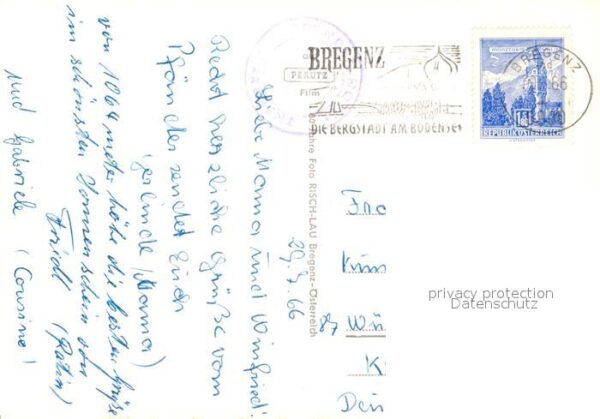 Liebe Mama und Winfried!
29.7.66
Recht herzliche Grüße vom
Pfänder sendet Euch
Gerlinde (Mama)
von 1064 meter höhe die besten Grüße
im schönsten Sonnenschein von
Friedl (Patin)
und Gabriele (Cousine!
BREGENZ
PERUTZ
Film
DIE BERGSTADT AM BODENSEE
BREGENZ
66
REPUBLIK ÖSTERREICH
Jahre Foto RISCH-LAU Bregenz-Österreich
Fra
87 Wü
K
privacy protection
Datenschutz